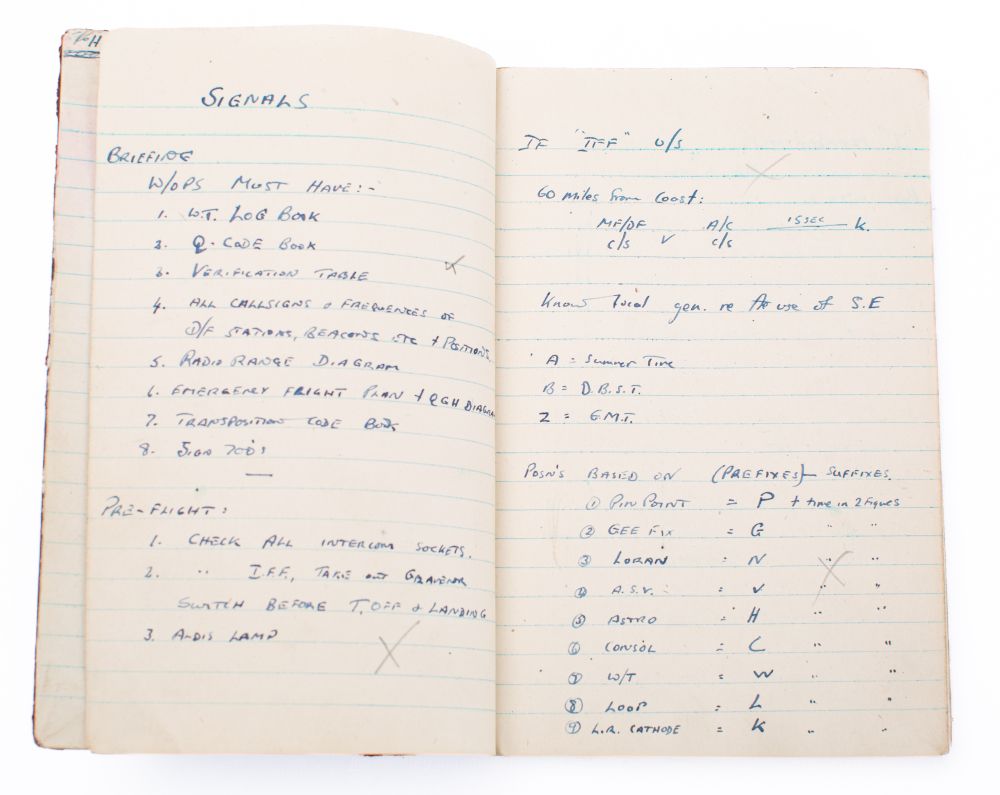 SIGNALS
BRIEFING
W/OPS MUST HAVE:-
1. W.T. LOG BOOK
2. Q. CODE BOOK
3. VERIFICATION TABLE
4. ALL CALLSIGNS & FREQUENCIES OF
D/F STATIONS, BEACONS ETC + POSITIONS.
5. RADIO RANGE DIAGRAM
6. EMERGENCY FLIGHT PLAN + QGH DIAGRAM
7. TRANSPOSITION CODE BOOK
8. SIGN 700's
PRE-FLIGHT:
1. CHECK ALL INTERCOM SOCKETS.
2. " I.F.F., TAKE OUT GRAVENOR
SWITCH BEFORE T.OFF & LANDING
3. ALDIS LAMP
IF "IFF" U/S
60 miles from Coast:
MF/DF A/C 15 SEC K.
C/S V C/S
Know local gen. re the use of S.E
A = Summer Time
B = D.B.S.T.
Z = G.M.T.
POSN'S BASED ON (PREFIXES) SUFFIXES.
① PIN POINT = P + time in 2 figures
② GEE FIX = G " "
③ LORAN = N " "
④ A.S.V. = V " "
⑤ ASTRO = H " "
⑥ CONSOL = C " "
⑦ W/T = W " "
⑧ LOOP = L " "
⑨ L.R. CATHODE = K " "